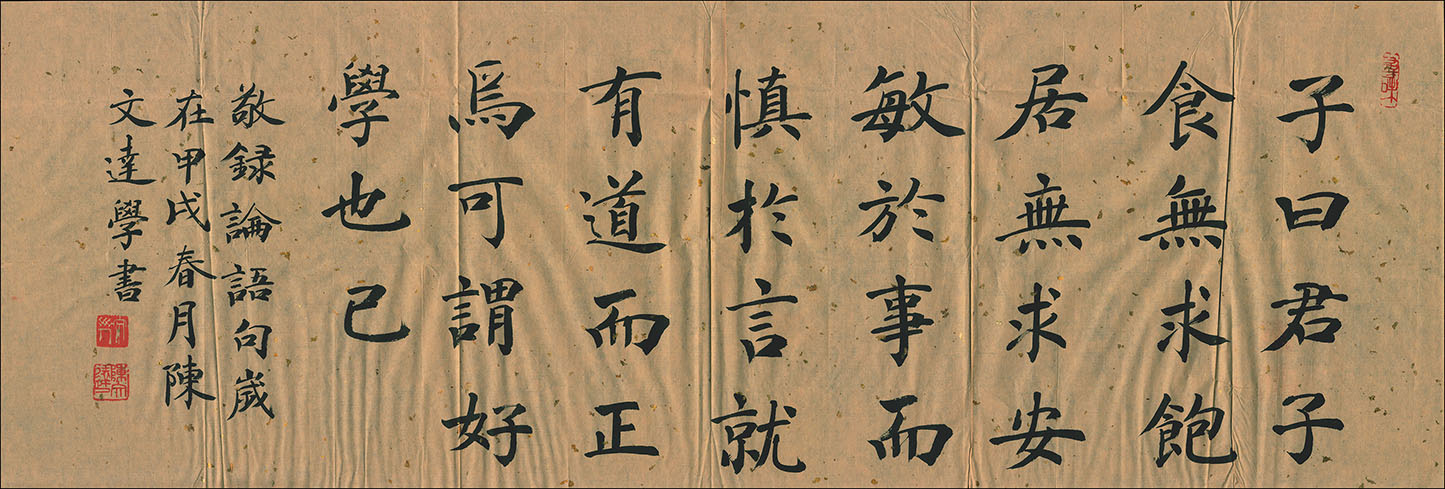 子曰君子
食無求飽
居無求安
敏於事而
慎於言就
有道而正
焉可謂好
學也已
敬録論語句歲
在甲戌春月陳
文達學書